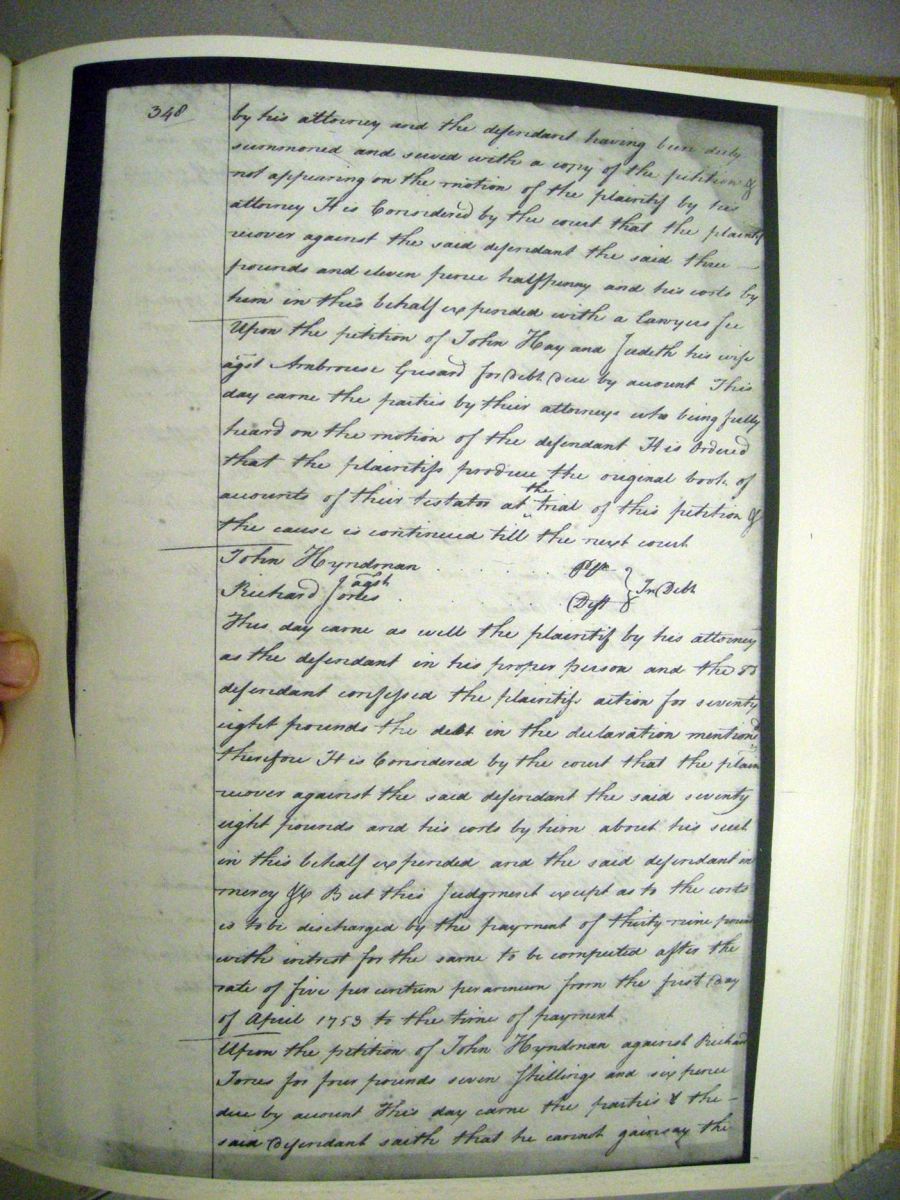 348
by his attorney and the defendant having been duly
summoned and served with a copy of the petition &
not appearing on the motion of the plaintif by his
attorney It is Considered by the court that the plaintif
recover against the said defendant the said three
pounds and eleven pence halfpenny and his costs by
him in this behalf expended with a lawyers fee
Upon the petition of John Hay and Judeth his wife
agst Ambrouse Gusard for Debt Due by account This
day came the parties by their attorneys who being fully
heard on the motion of the defendant It is Ordered
that the plaintifs produce the original book of
accounts of their testator at the trial of this petition &
the cause is continued till the next court
John Hyndman . . . . Plf
agst In Debt
Richard Jones . . Deft
This day came as well the plaintif by his attorney
as the defendant in his proper person and the sd
defendant confessed the plaintifs action for seventy
eight pounds the debt in the declaration mentiond
therefore It is Considered by the court that the plain
recover against the said defendant the said seventy
eight pounds and his costs by him about his suit
in this behalf expended and the said defendant in
mercy &c But this Judgment except as to the costs
is to be discharged by the payment of thirty nine pound
with intrest for the same to be computed after the
rate of five per centum per annum from the first Day
of April 1753 to the time of payment
Upon the petition of John Hyndman against Richard
Jones for four pounds seven Shillings and six pence
due by account This day came the parties & the
said Defendant saith that he cannot gainsay the